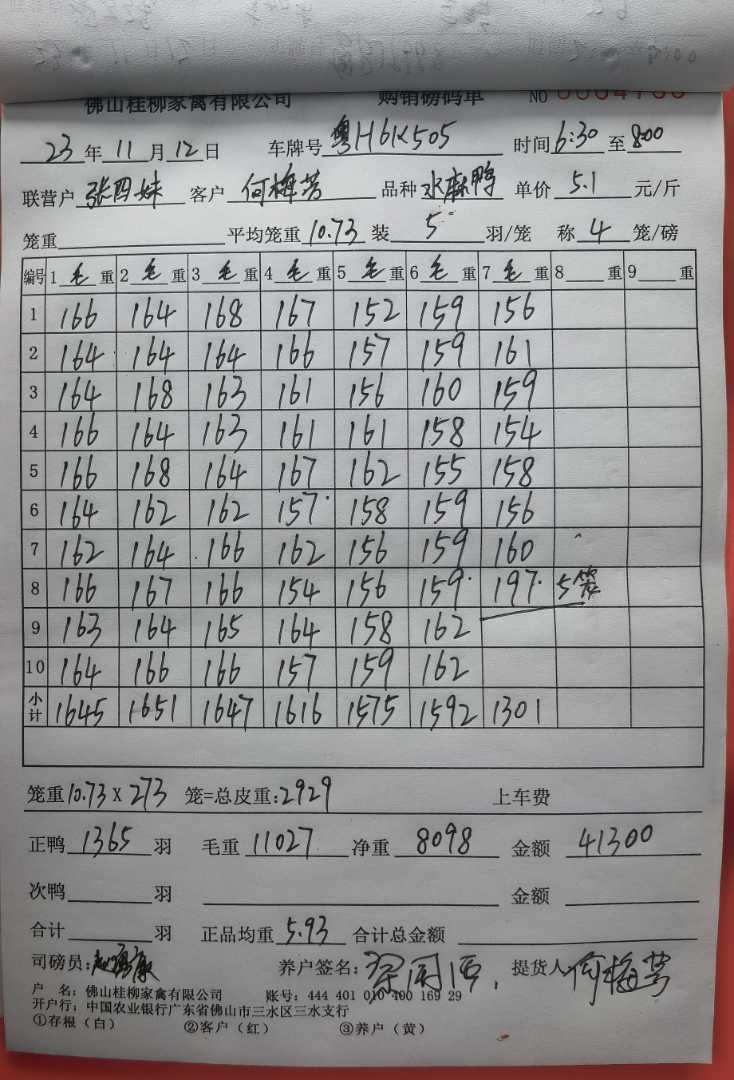 佛山桂柳家禽有限公司 购销磅码单 NO
23年11月12日 车牌号粤H6K505 时间6:30至8:00
联营户张四妹 客户何梅芳 品种水麻鸭 单价5.1元/斤
笼重 平均笼重10.73 装5羽/笼 称4笼/磅
编号 1毛重 2毛重 3毛重 4毛重 5毛重 6毛重 7毛重 8重 9重
1 166 164 168 167 152 159 156
2 164 164 164 166 157 159 161
3 164 168 163 161 156 160 159
4 166 164 163 161 161 158 154
5 166 168 164 167 162 155 158
6 164 162 162 157 158 159 156
7 162 164 166 162 156 159 160
8 166 167 166 154 156 159 197 5笼
9 163 164 165 164 158 162
10 164 166 166 157 159 162
小计 1645 1651 1647 1616 1575 1592 1301
笼重10.73X273笼=总皮重:2929 上车费
正鸭1365羽 毛重11027 净重8098 金额41300
次鸭羽 金额
合计羽 正品均重5.93 合计总金额
司磅员: 养户签名: 提货人何梅芳
户名:佛山桂柳家禽有限公司 账号:444 401 010 400 169 29
开户行:中国农业银行广东省佛山市三水区三水支行
①存根(白) ②客户(红) ③养户(黄)